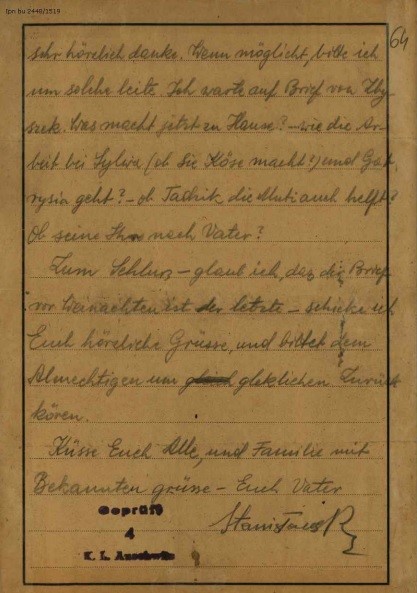 Ipn bu 2448/1519
64
sehr hörzlich danke. Wenn möglicht, bitte ich
um solche leite. Ich warte auf Brief von Zby
szek. Was macht jetzt zu Hause? – wie die Ar-
beit bei Sylwa (ob Sie Köse macht?) und
rysia geht? – ob Tadzik die Muti auch helft?
Ob seine nach Vater?
Zum Schluss – glaub ich, daz die Brief
vor Weinachten ist der letzte – schicke ich
Euch hörzliche Grüsse, und bittet dem
Almechtigen um gleklichen Zurück
kören.
Küsse Euch Alle, und Familie mit
Bekannten grüsse – Euch Vater
Stanisław R
Geprüft
4
K. L. Auschwitz